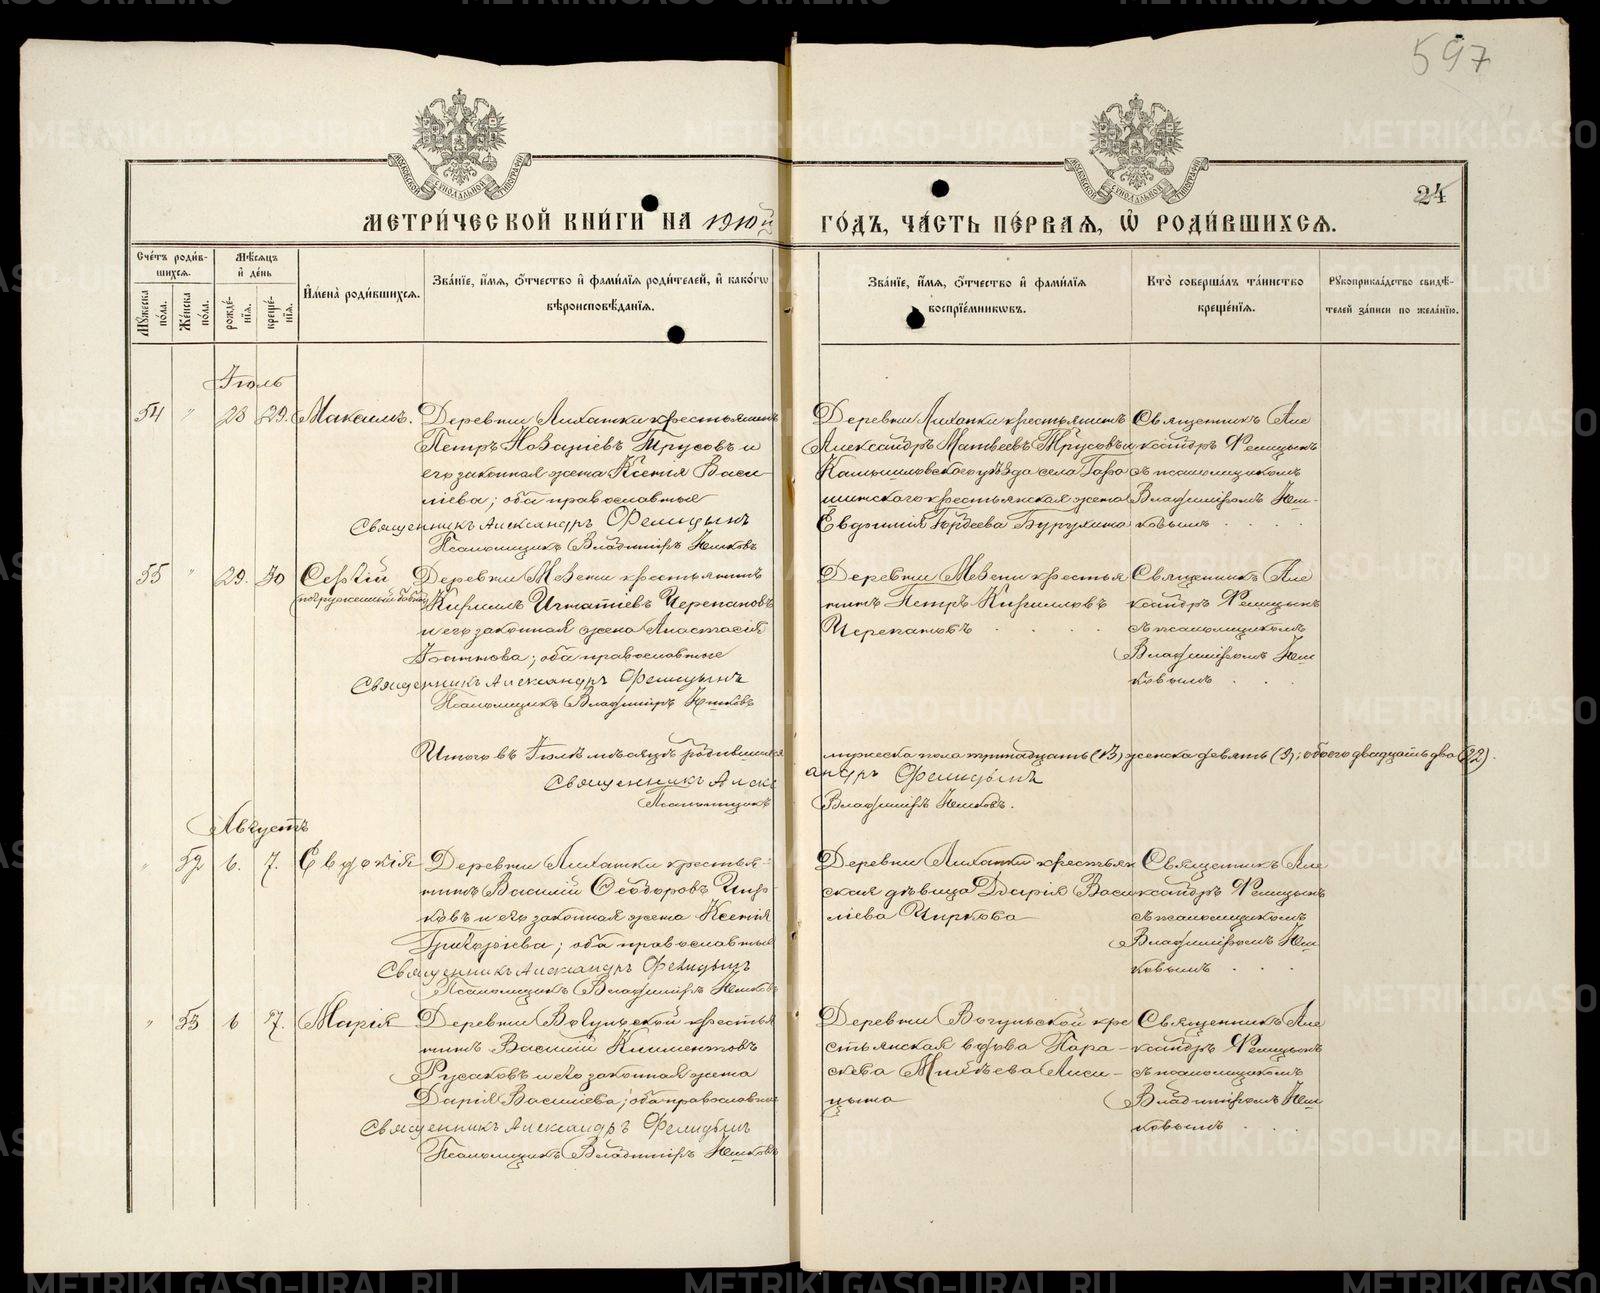 597
24
МЕТРИЧЕСКОЙ КНИГИ НА 1910й ГОДЪ, ЧАСТЬ ПЕРВАЯ, Ѿ РОДИВШИХСЯ.
Счетъ родив-
шихся.
Мужеска пола.
Женска пола.
Мѣсяцъ
и день
рожде-
нія.
креще-
нія.
Имена родившихся.
Званіе, имя, отчество и фамилія родителей, и какогѡ
вѣроисповѣданія.
Званіе, имя, отчество и фамилія
воспріемниковъ.
Кто совершалъ таинство
крещенія.
Рукоприкладство свидѣ-
телей записи по желанію.
Іюль
54 " 28 29. Максимъ.
Деревни Лиханки крестьянинъ
Петръ Новаціевъ Трусовъ и
его законная жена Ксенія Васи-
ліева; оба православные
Священникъ Александръ Фелицынъ
Псаломщикъ Владиміръ
Деревни Лиханки крестьянинъ
Александръ Матвеевъ Трусовъ и
Камышловскаго уѣзда села
крестьянская жена
Евдокимія
Священникъ Але
ксандръ Фелицынъ
съ псаломщикомъ
Владиміромъ
55 " 29. 30 Сергій
Деревни крестьянинъ
Кириллъ Игнатіевъ Черепановъ
и его законная жена Анастасія
оба православные
Священникъ Александръ Фелицынъ
Псаломщикъ Владиміръ
Деревни крестья
нинъ Петръ Кирилловъ
Черепановъ
Священникъ Але
ксандръ Фелицынъ
съ псаломщикомъ
Владиміромъ
Итого въ Іюлѣ мѣсяцѣ родившихся мужеска пола тринадцать (13) женска девять (9); обоего двадцать два (22).
Священникъ Александръ Фелицынъ
Псаломщикъ Владиміръ
Августъ
" 52 6. 7. Евдокія
Деревни Лиханки крестья-
нинъ Василій Ѳеодоровъ Чир-
ковъ и его законная жена Ксенія
Григоріева; оба православные
Священникъ Александръ Фелицынъ
Псаломщикъ Владиміръ
Деревни Лиханки крестьян
ская дѣвица Дарія Васи
ліева Чиркова
Священникъ Але
ксандръ Фелицынъ
съ псаломщикомъ
Владиміромъ
" 53 6 7. Марія
Деревни Вогульской крестья
нинъ Василій Климентовъ
Русаковъ и его законная жена
Дарія Василіева; оба православные
Священникъ Александръ Фелицынъ
Псаломщикъ Владиміръ
Деревни Вогульской кре
стьянская вдова Пара-
скева Михѣева Лиси-
цына
Священникъ Але
ксандръ Фелицынъ
съ псаломщикомъ
Владиміромъ
METRIKI.GASO-URAL.RU